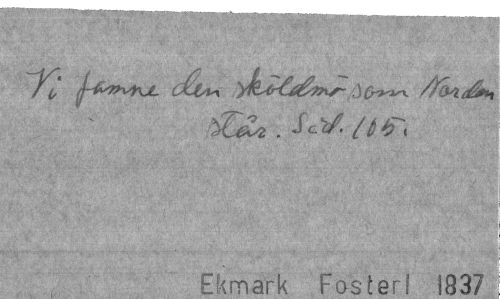 Vi famne den sköldmö som Norden
står. Sid. 105.
Ekmark Fosterl 1837